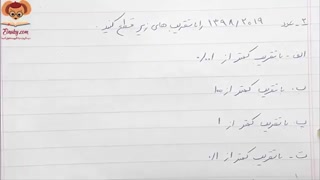 Elmday.com
۳- عدد ۱۳۹۸/۲۰۱۹ را با تقریب های زیر قطع کنید
الف- با تقریب کمتر از ۰/۰۱
ب. با تقریب کمتر از ۱۰
پ- با تقریب کمتر از ۱
ت- با تقریب کمتر از ۰/۱